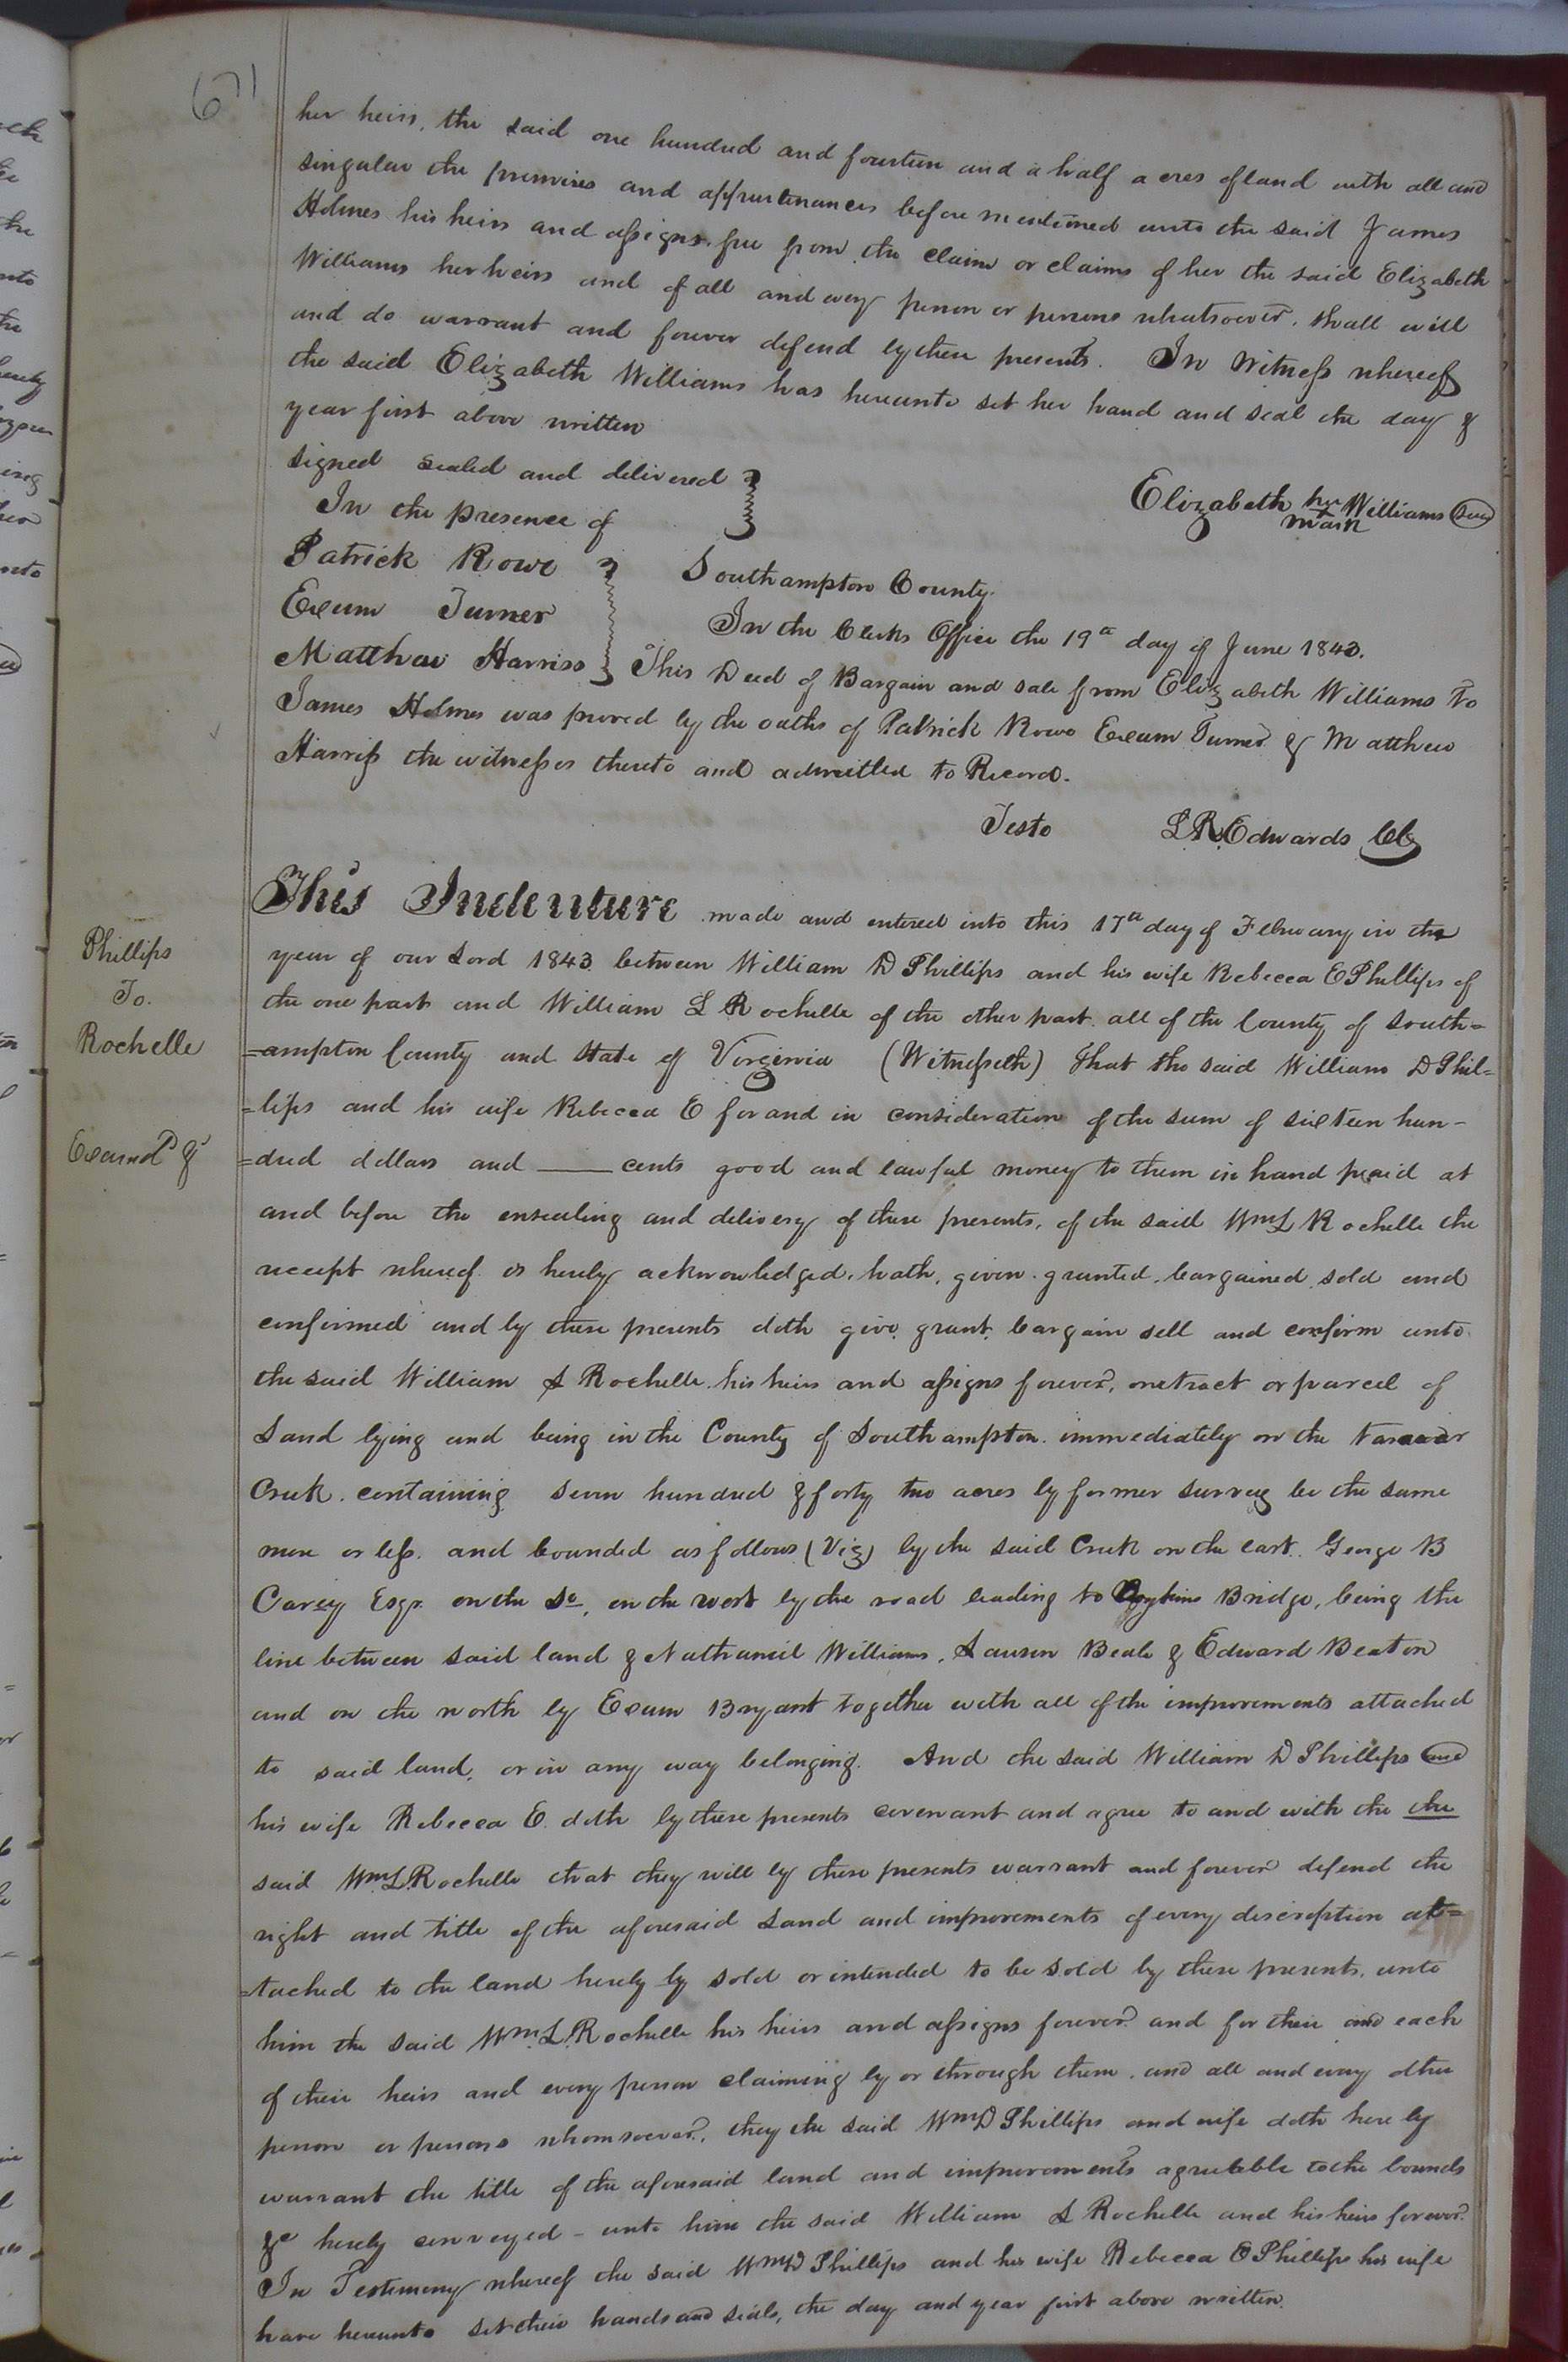 671
her heirs, the said one hundred and fourteen and a half acres of land with all and
singular the premises and appurtenances before mentioned unto the said James
Holmes his heirs and assigns, free from the claim or claims of her the said Elizabeth
Williams her heirs and of all and every person or persons whatsoever, shall will
and do warrant and forever defend by these presents. In Witness whereof
the said Elizabeth Williams has hereunto set her hand and seal the day &
year first above written
signed sealed and delivered
In the presence of
Elizabeth her mark Williams seal
Patrick Rowe
Exum Turner
Matthew Harriss
Southampton County.
In the Clerks Office the 19th day of June 1843.
This Deed of Bargain and sale from Elizabeth Williams to
James Holmes was proved by the oaths of Patrick Rowe Exum Turner & Matthew
Harriss the witnesses thereto and admitted to Record.
Teste L R Edwards Clk
Phillips
To.
Rochelle
Examd &
This Indenture made and entered into this 17th day of February in the
year of our Lord 1843 between William D Phillips and his wife Rebecca E Phillips of
the one part and William L Rochelle of the other part. all of the County of South=
=ampton County and State of Virginia (Witnesseth) That the said William D Phil=
=lips and his wife Rebecca E for and in consideration of the sum of sixteen hun-
=dred dollars and ___ cents good and lawful money to them in hand paid at
and before the ensealing and delivery of these presents, of the said Wm L Rochelle the
receipt whereof is hereby acknowledged, hath, given, granted, bargained, sold and
confirmed and by these presents doth give, grant, bargain sell and confirm unto
the said William L Rochelle, his heirs and assigns forever, one tract or parcel of
Land lying and being in the County of Southampton immediately on the
Creek. containing seven hundred & forty two acres by former survey be the same
more or less. and bounded as follows (Viz) by the said Creek on the east. George B
Carey Esqr. on the So, on the west by the road leading to Bridge, being the
line between said land & Nathaniel Williams, Lawson Beale & Edward Beaton
and on the north by Exum Bryant together with all of the improvements attached
to said land, or in any way belonging. And the said William D Phillips and
his wife Rebecca E. doth by these presents covenant and agree to and with the the
said Wm L. Rochelle that they will by these presents warrant and forever defend the
right and title of the aforesaid Land and improvements of every discription at=
=tached to the land hereby by sold or intended to be sold by these presents, unto
him the said Wm. L. Rochelle his heirs and assigns forever and for their and each
of their heirs and every person claiming by or through them, and all and every other
person or persons whomsoever, they the said Wm D Phillips and wife doth hereby
warrant the title of the aforesaid land and improvements agreeable to the bounds
&c hereby conveyed - unto him the said William L Rochelle and his heirs forever.
In Testimony whereof the said Wm D Phillips and his wife Rebecca E Phillips his wife
have hereunto set their hands and seals, the day and year first above written.